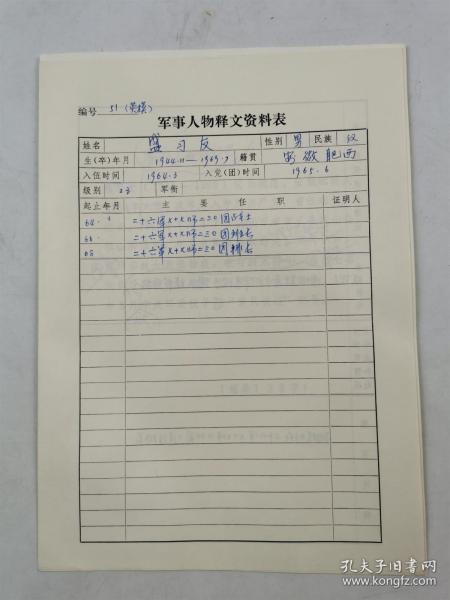 编号 51（英模）
军事人物释文资料表
姓名 盛习友 性别 男 民族 汉
生(卒)年月 1944.11—1969.7 籍贯 安徽肥西
入伍时间 1964.3 入党(团)时间 1965.6
级别 23 军衔
起止年月 主要任职 证明人
64. 二十六军七十七师二三〇团战士
二十六军七十七师二三〇团
二十六军七十七师二三〇团排长
孔夫子旧书网
www.kongfz.com